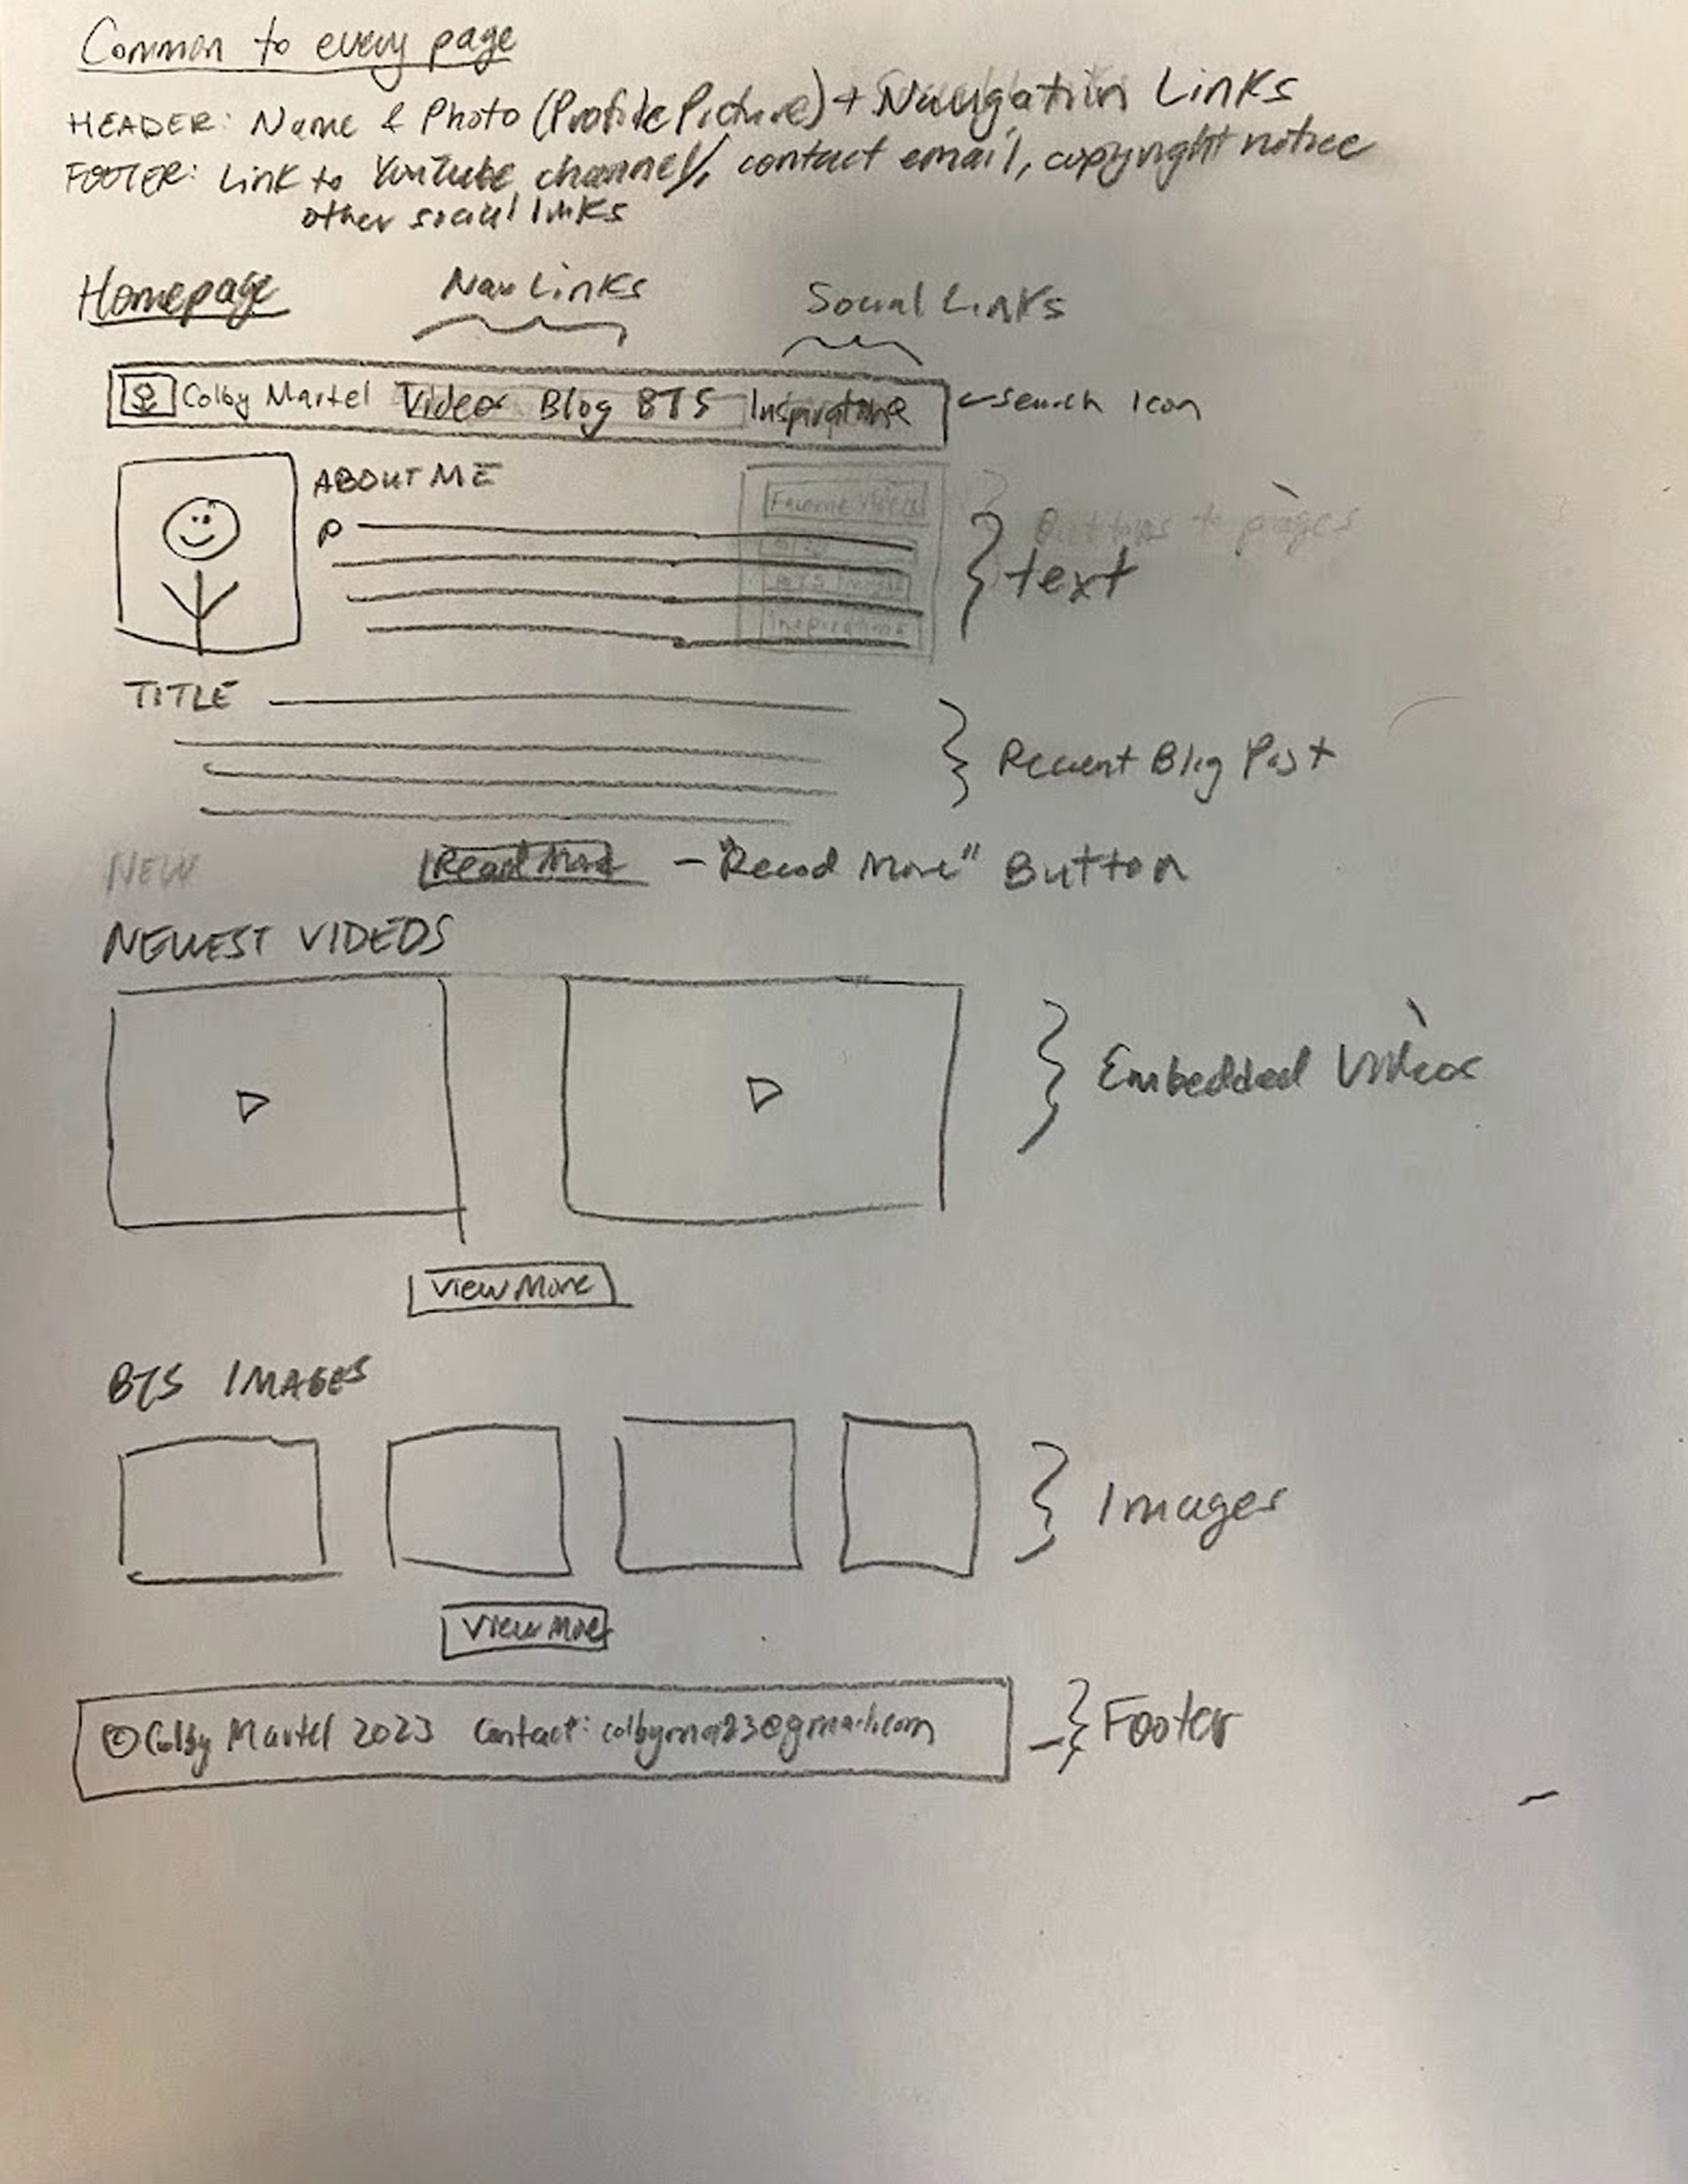 Common to every page
HEADER: Name & Photo (Profile Picture) + Navigation Links
FOOTER: Link to YouTube channel, contact email, copyright notice
other social links
Homepage
Nav Links
Social Links
Colby Martel Video Blog BTS Inspiration
search icon
ABOUT ME
Favorite Videos
BTS Images
Inspirations
Buttons to pages
text
TITLE
Recent Blog Post
NEW
Read More - "Read More" Button
NEWEST VIDEOS
Embedded Videos
View More
BTS IMAGES
Images
View More
© Colby Martel 2023 Contact: colbyma23@gmail.com
Footer